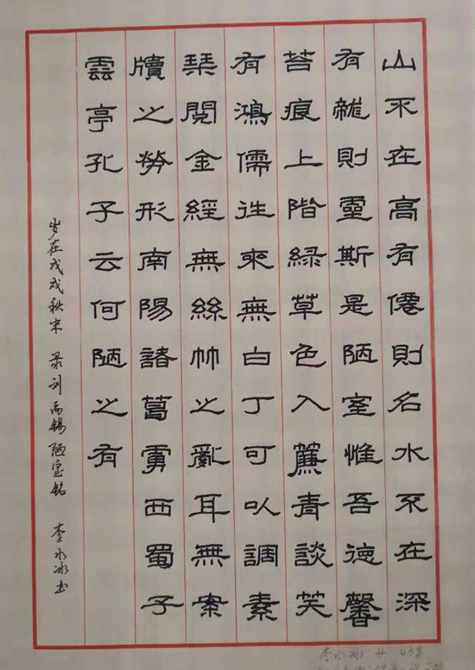 山不在高有僊則名水不在深
有龍則靈斯是陋室惟吾德馨
苔痕上階緑草色入簾青談笑
有鴻儒往來無白丁可以調素
琴閱金經無絲竹之亂耳無案
牘之勞形南陽諸葛廬西蜀子
雲亭孔子云何陋之有
岁在戊戌秋末 录刘禹锡陋室铭 李永冰书